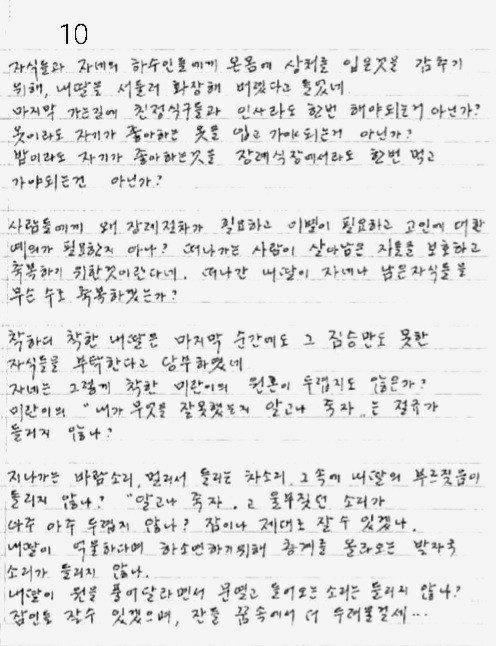 10
자식들과 자네의 하수인들에게 온몸에 상처를 입은것을 감추기
위해, 내딸을 서둘러 화장해 버렸다고 들었네.
마지막 가는길에 친정식구들과 인사라도 한번 해야되는거 아닌가?
옷이라도 자기가 좋아하는 옷을 입고 가야되는거 아닌가?
밥이라도 자기가 좋아하는것을 장례식장에서라도 한번 먹고
가야되는건 아닌가?
사람들에게 왜 장례절차가 필요하고 이별이 필요하고 고인에 대한
예의가 필요한지 아나? 떠나가는 사람이 살아남은 자들을 보호하고
축복하기 위한것이란다네. 떠나간 내딸이 자네나 남은자식들을
무슨 수로 축복하겠는가?
착하디 착한 내딸은 마지막 순간에도 그 짐승만도 못한
자식들을 부탁한다고 당부하였네
자네는 그렇게 착한 미란이의 원혼이 두렵지도 않은가?
미란이의 "내가 무엇을 잘못했는지 알고나 죽자"는 절규가
들리지 않나?
지나가는 바람소리, 멀리서 들리는 차소리, 그속에 내딸의 부르짖음이
들리지 않나? "알고나 죽자."고 울부짖던 소리가
아주 아주 두렵지 않나? 잠이나 제대로 잘수 있겠나.
내딸이 억울하다며 하소연하기위해 층계를 올라오는 발자국
소리가 들리지 않나.
내딸이 원을 풀어달라면서 문열고 들어오는소리는 들리지 않나?
잠인들 잘수 있겠으며, 잔들 꿈속에서 더 두려울걸세...